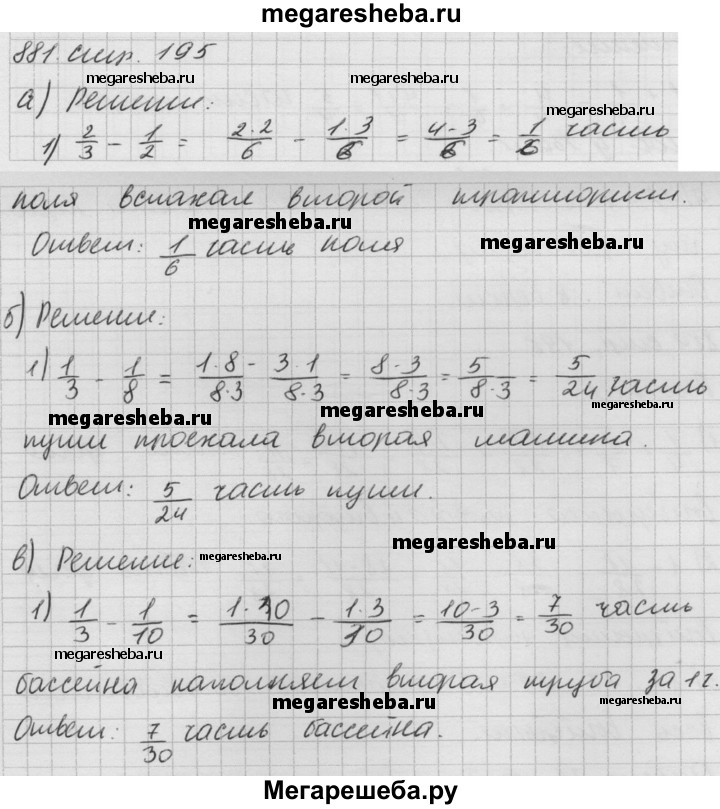 megaresheba.ru
881. стр. 195
megaresheba.ru megaresheba.ru
а) Решение: megaresheba.ru
1) 2/3 - 1/2 = 2·2/6 - 1·3/6 = 4-3/6 = 1/6 часть
поля вспахал второй тракторист.
megaresheba.ru
Ответ: 1/6 часть поля megaresheba.ru
б) Решение:
1) 1/3 - 1/8 = 1·8/8·3 - 3·1/8·3 = 8-3/8·3 = 5/8·3 = 5/24 часть
megaresheba.ru megaresheba.ru megaresheba.ru
пути проехала вторая машина.
Ответ: 5/24 часть пути.
megaresheba.ru
в) Решение: megaresheba.ru
1) 1/3 - 1/10 = 1·10/30 - 1·3/30 = 10-3/30 = 7/30 часть
megaresheba.ru megaresheba.ru
бассейна наполняет вторая труба за 1 ч.
megaresheba.ru megaresheba.ru
Ответ: 7/30 часть бассейна.
Мегарешеба.ру